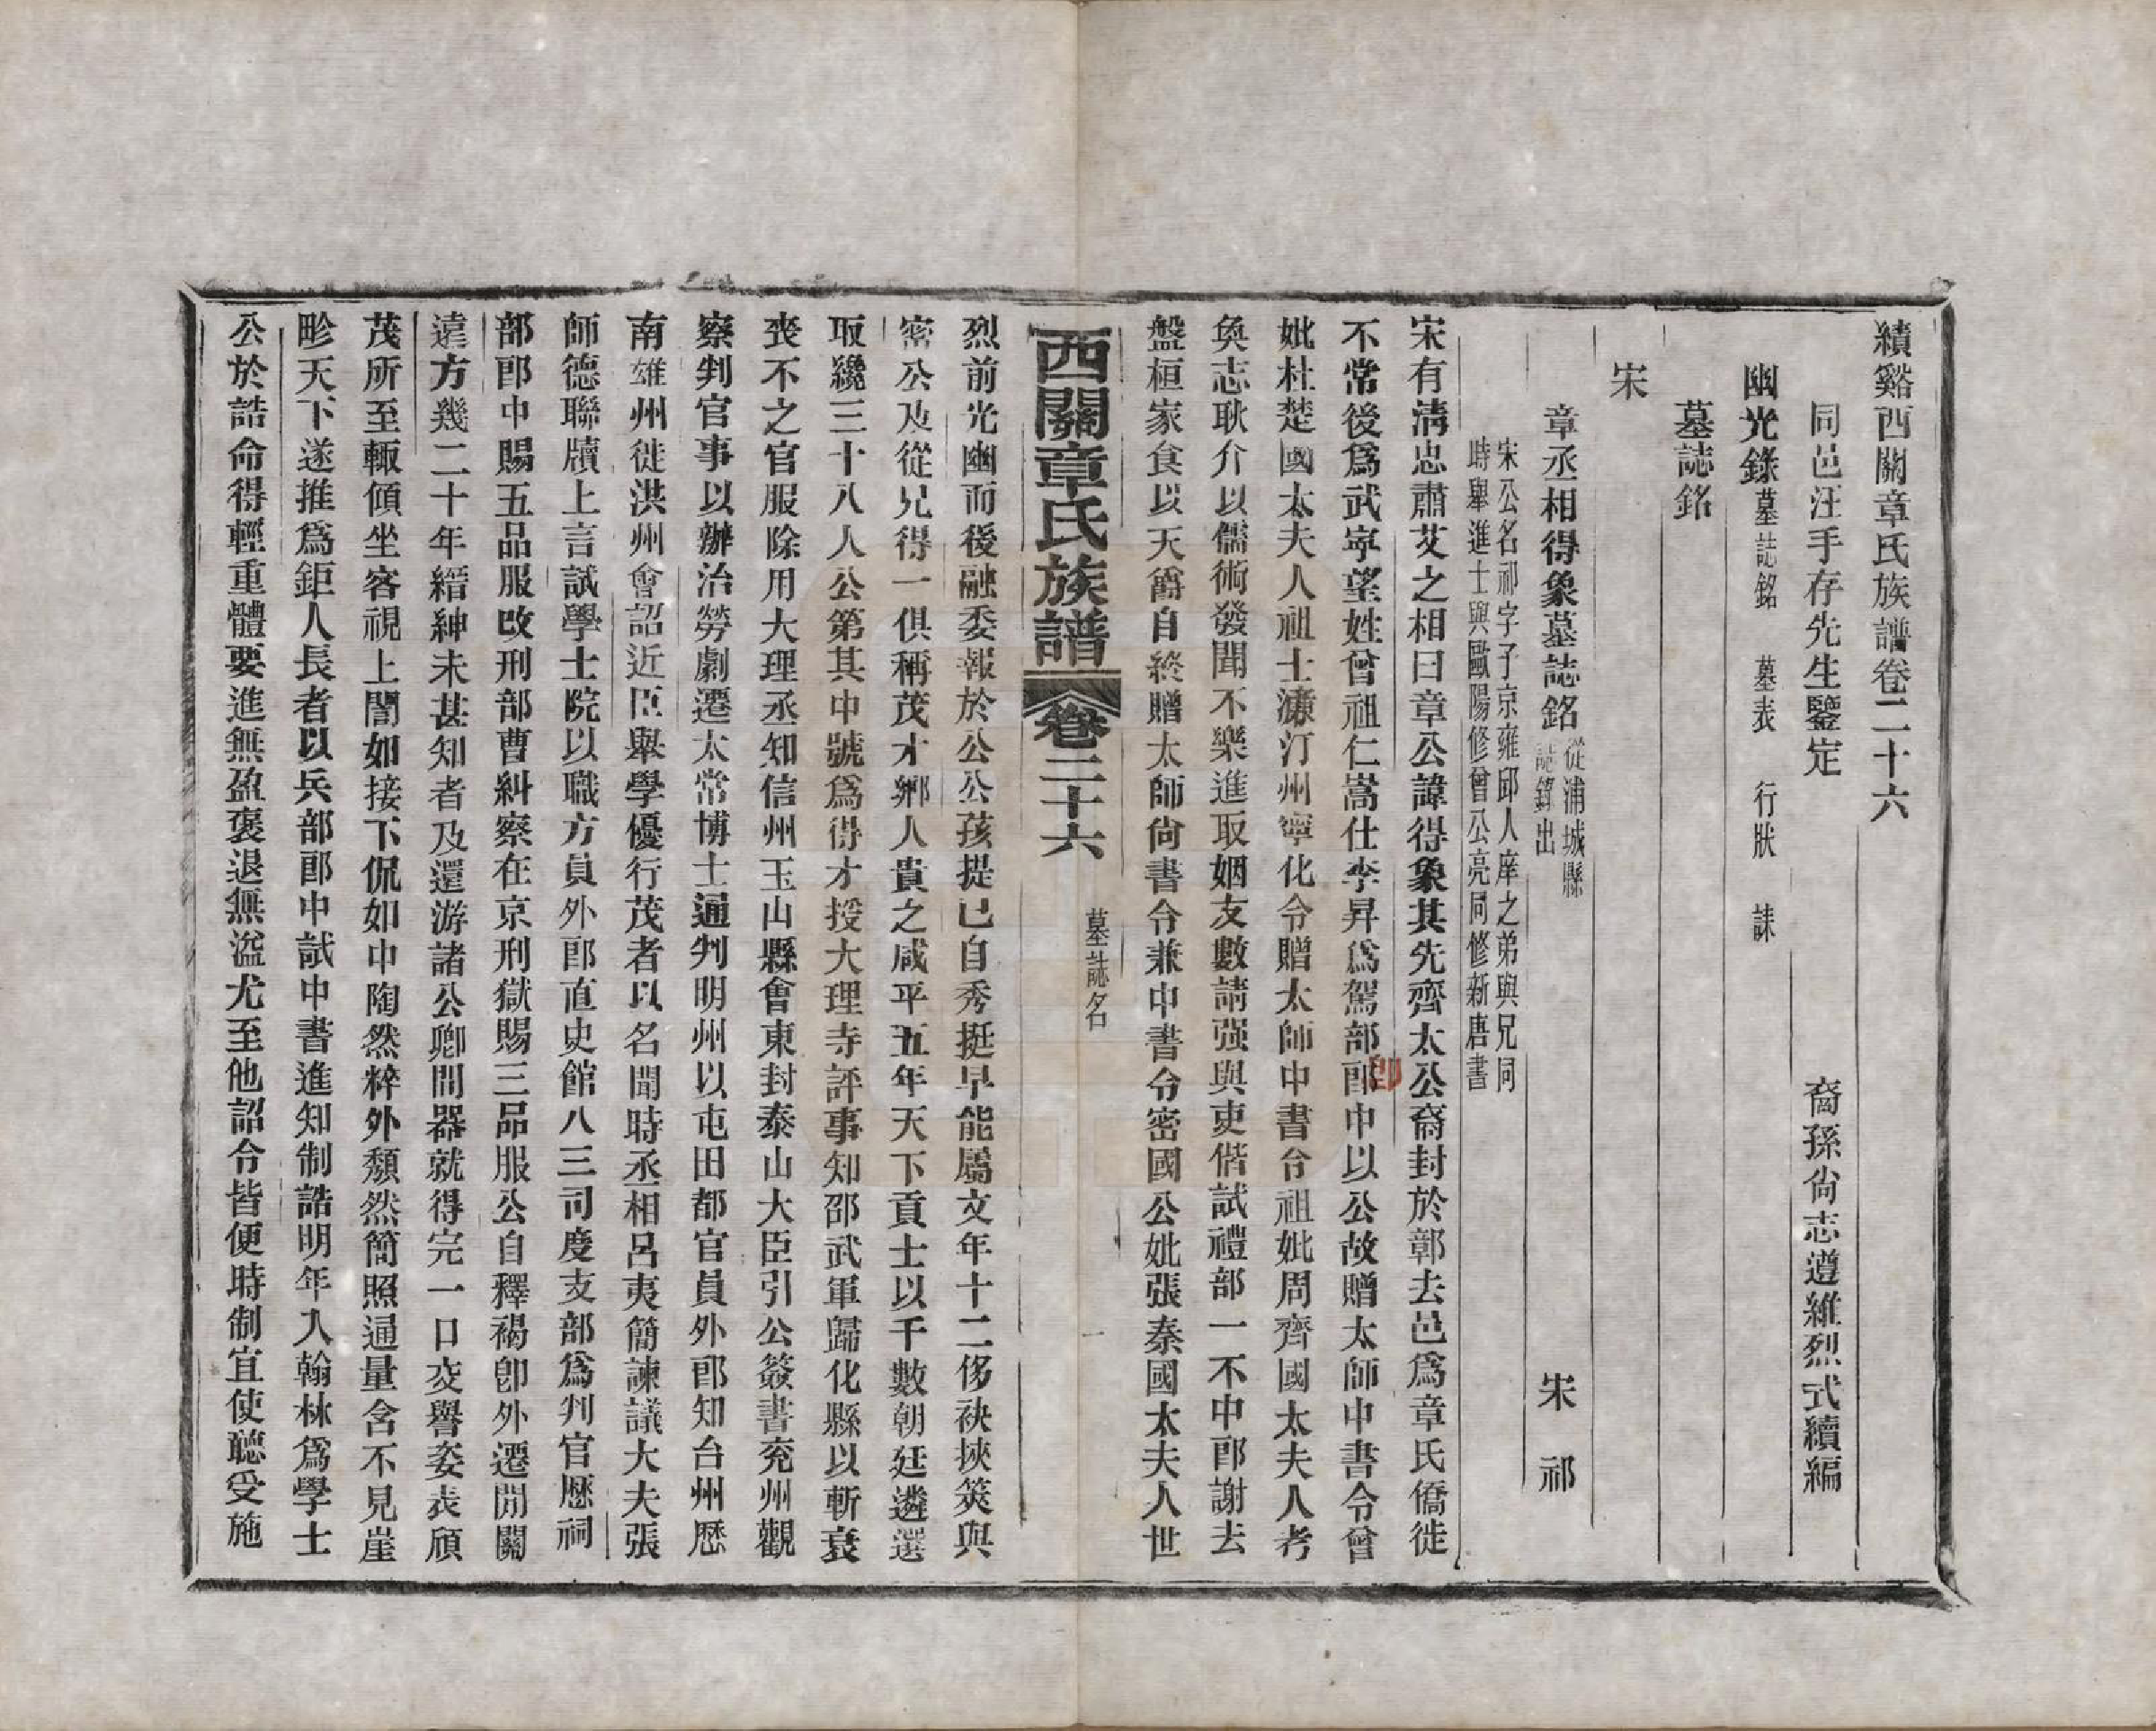 績谿西關章氏族譜卷二十六
同邑汪手存先生鑒定　裔孫尙志遵維烈式續編
幽光錄墓誌銘　墓表　行狀　誄
墓誌銘
宋
章丞相得象墓誌銘從浦城縣誌錄出　宋祁
宋公名祁字子京雍邱人庠之弟與兄同
時舉進士與歐陽修曾公亮同修新唐書
宋有淸忠肅艾之相曰章公諱得象其先齊太公裔封於鄣去邑爲章氏僑徙
不常後爲武寧望姓曾祖仁嵩仕李昇爲駕部郎中以公故贈太師中書令曾
妣杜楚國太夫人祖士濂汀州寧化令贈太師中書令祖妣周齊國太夫人考
奐志耿介以儒術發聞不樂進取姻友數請强與吏偕試禮部一不中卽謝去
盤桓家食以天爵自終贈太師尙書令兼中書令密國公妣張秦國太夫人世
西關章氏族譜　卷二十六　墓誌名　一
烈前光幽而後融委報於公公孩提已自秀挺早能屬文年十二侈袂挾筴與
密公及從兄得一俱稱茂才鄉人貴之咸平五年天下貢士以千數朝廷遴選
取纔三十八人公第其中號爲得才授大理寺評事知邵武軍歸化縣以斬衰
喪不之官服除用大理丞知信州玉山縣會東封泰山大臣引公簽書兖州觀
察判官事以辦治勞劇遷太常博士通判明州以屯田都官員外郎知台州歷
南雄州徙洪州會詔近臣舉學優行茂者以名聞時丞相呂夷簡諫議大夫張
師德聯牘上言試學士院以職方員外郎直史館八三司度支部爲判官歷祠
部郎中賜五品服改刑部曹糾察在京刑獄賜三品服公自釋褐卽外遷閒關
遠方幾二十年縉紳未甚知者及還游諸公卿間器就得完一口交譽姿表頎
茂所至輙傾坐客視上誾如接下侃如中陶然粹外頹然簡照通量含不見崖
畛天下遂推爲鉅人長者以兵部郎中試中書進知制誥明年入翰林爲學士
公於誥命得輕重體要進無盈褒退無溢尤至他詔令皆便時制宜使聽受施